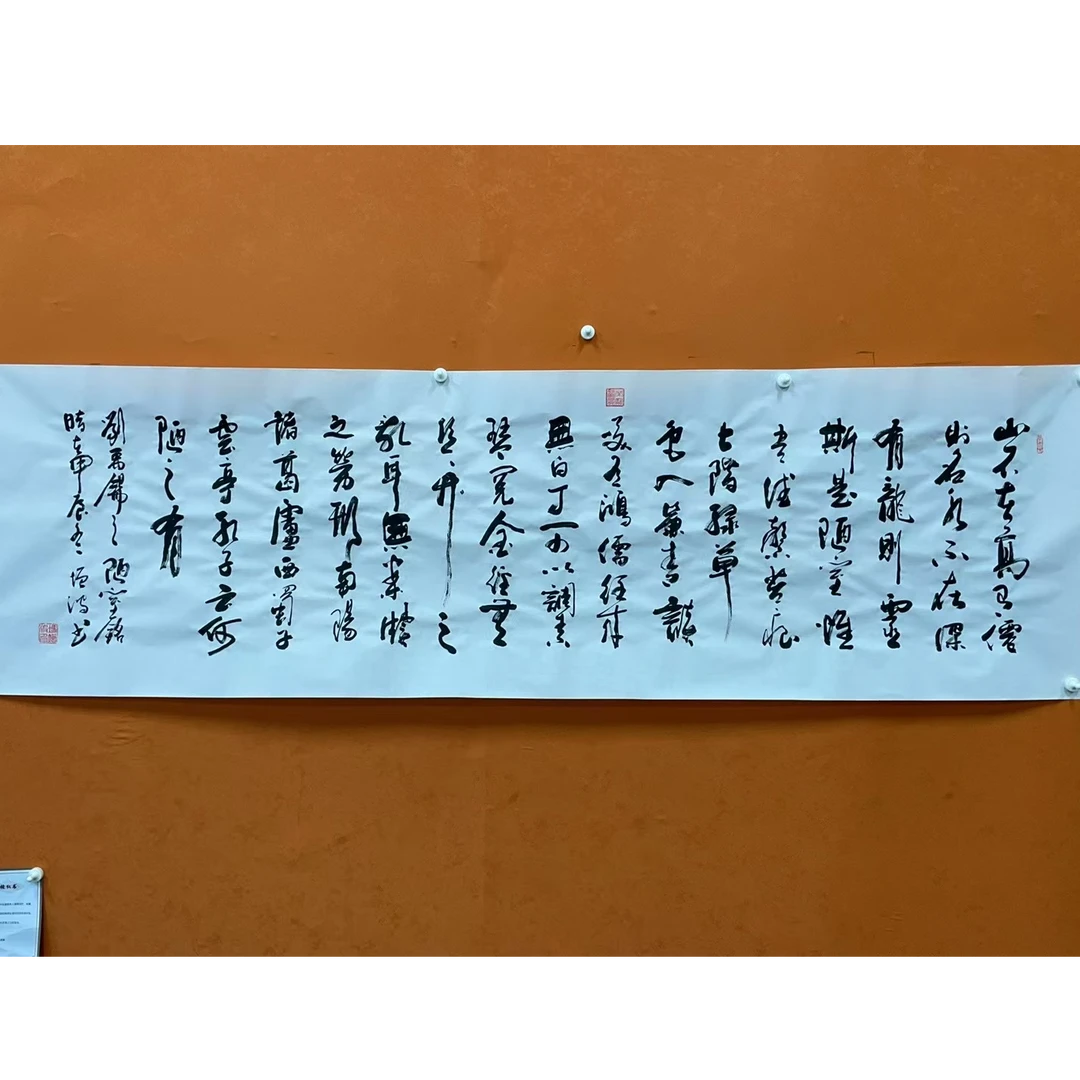 山不在高有僊
則名水不在深
有龍則靈
斯是陋室惟
吾德馨苔痕
上階綠草
色入簾青談
笑有鴻儒往來
無白丁可以調素
琴閱金經無
絲竹之
亂耳無案牘
之勞形南陽
諸葛廬西蜀子
雲亭孔子云何
陋之有
劉禹錫之陋室銘
時在甲辰冬书